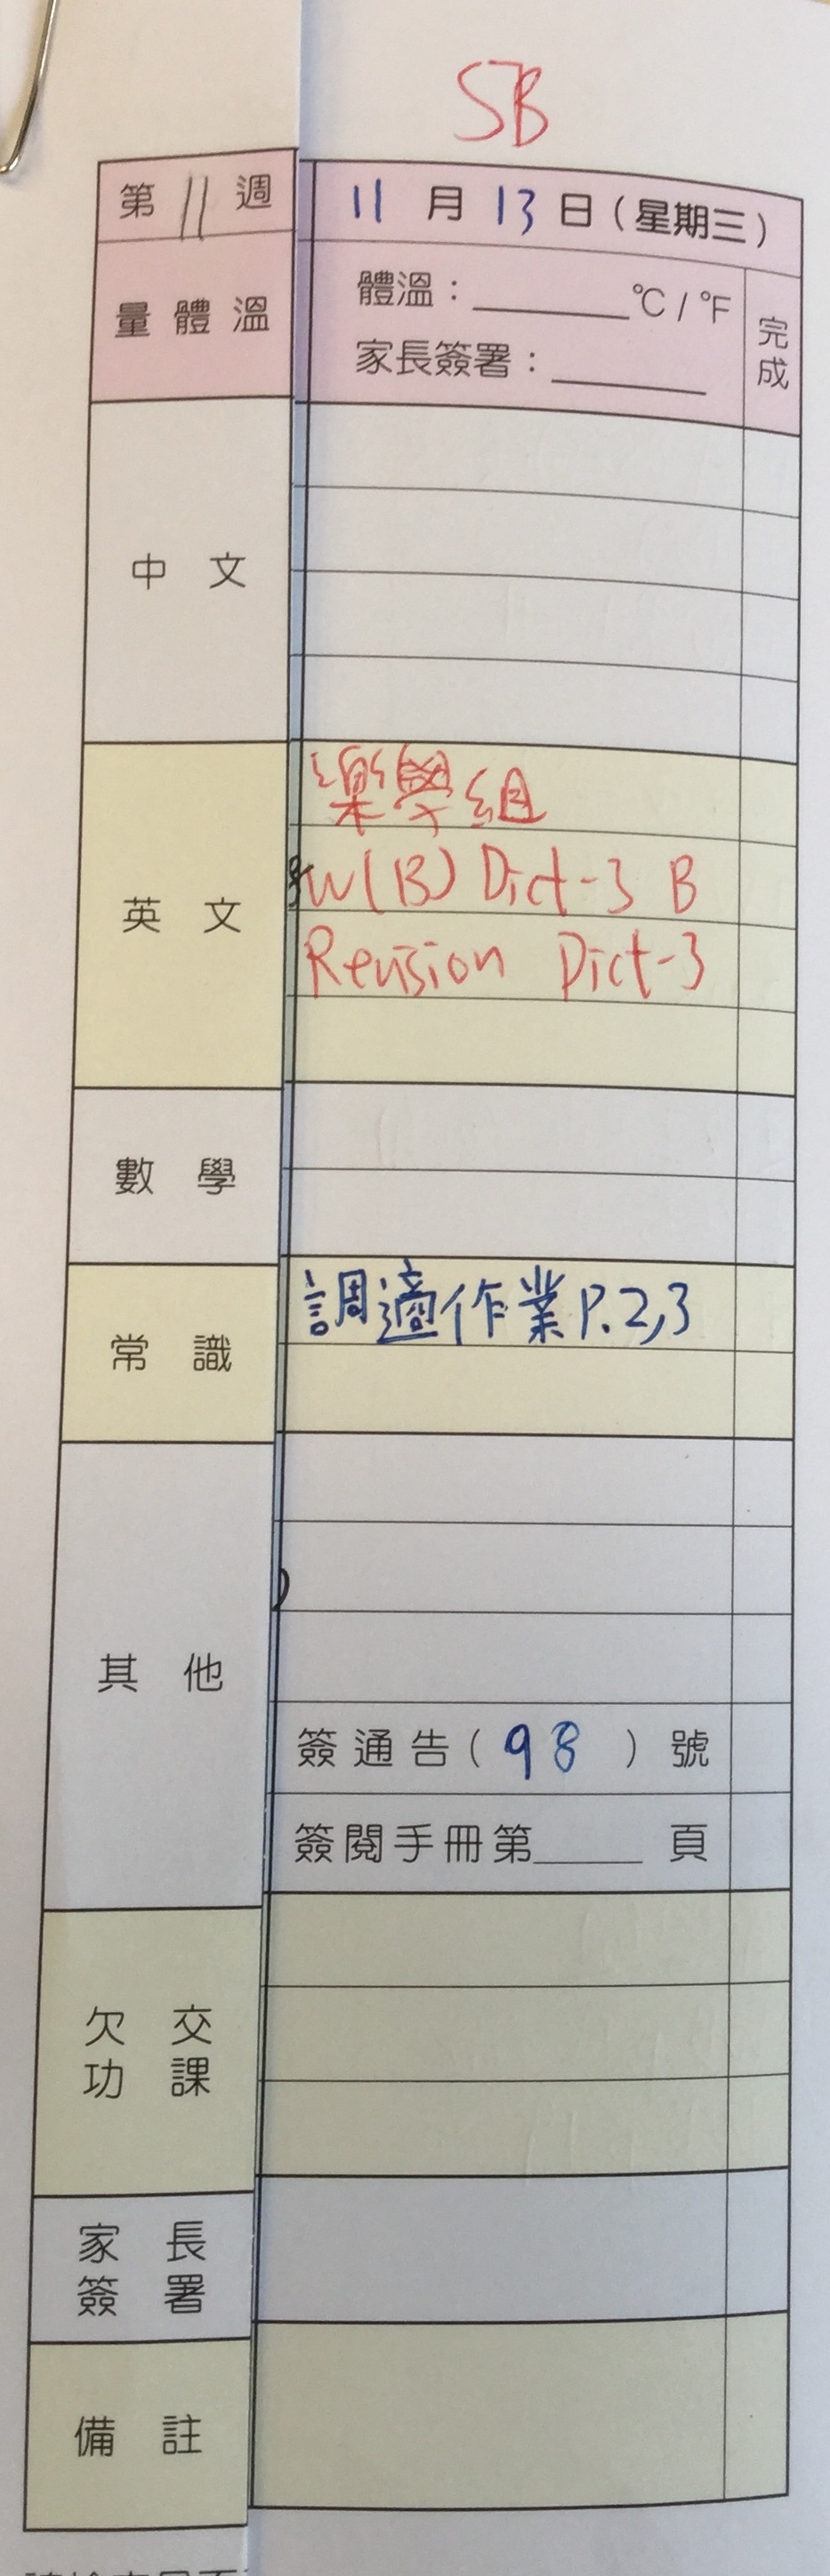 5B
第 11 週
11 月 13 日(星期三)
量體溫
體溫：______°C / °F
家長簽署：______
完成
中文
英文
樂學組
W(B) Dict-3 B
Revision Dict-3
數學
常識
調適作業P.2,3
其他
簽通告( 98 ) 號
簽閱手冊第____ 頁
欠交
功課
家長
簽署
備註